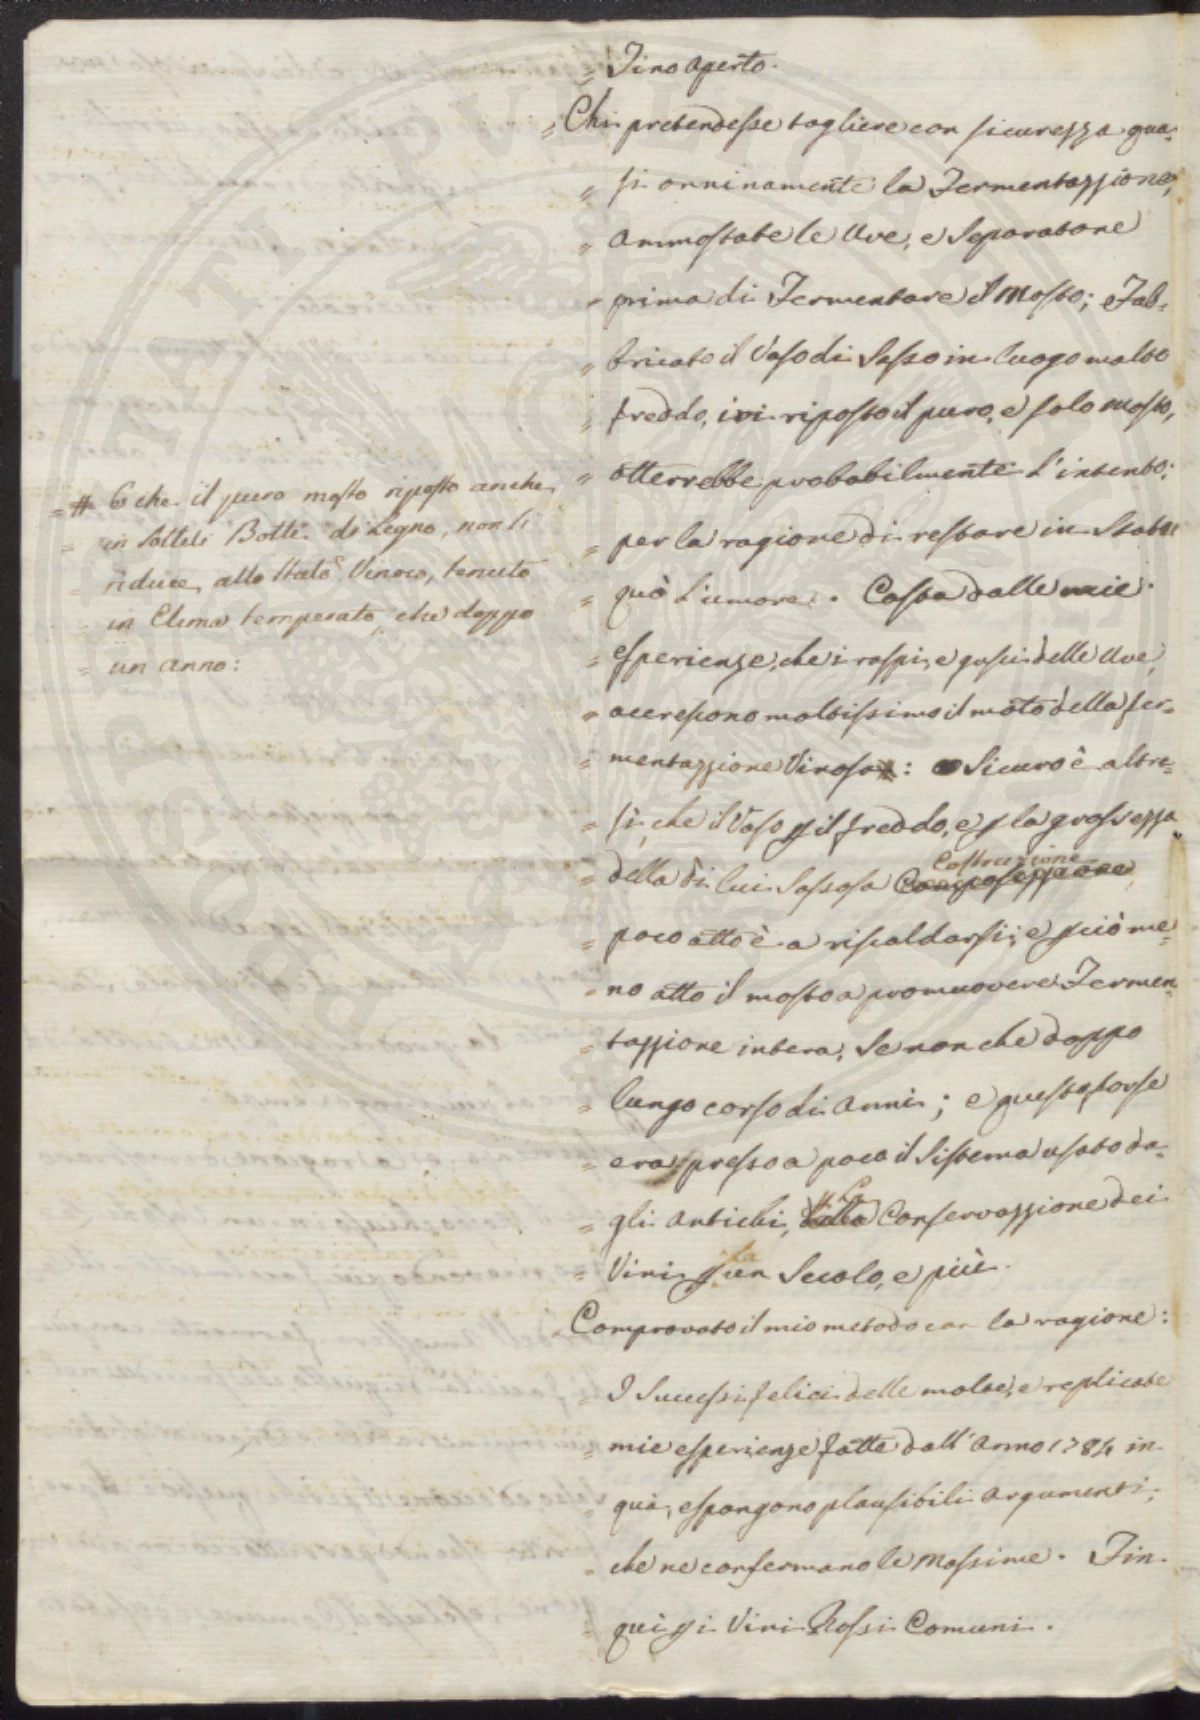 Tino aperto.
Chi pretendesse togliere con sicurezza qua-
si onninamente la Fermentazzione,
ammostate le Uve, e Separatone
prima di Fermentare il Mosto; e Fab-
bricato il Vaso di Sasso in luogo molto
freddo, ivi riposto il puro, e solo mosto,
otterrebbe probabilmente l'intento:
per la ragione di restare in Statu
quò l'umore. Costa dalle mie
esperienze, che i raspi, e gusci delle Uve,
accrescono moltissimo il moto della fer-
mentazzione Vinosa #: Sicuro è altre-
sì, che il Vaso p il freddo, e p la grossezza
della di lui Sassosa Composizzione Costruzione,
poco atto è a riscaldarsi; e pciò me-
no atto il mosto a promuovere Fermen-
tazzione intera, Se non che doppo
lungo corso di Anni; e questo forse
era presso a poco il Sistema usato da-
gli Antichi, della #La Conservazzione dei
Vini p un Secolo, e più.
Comprovato il mio metodo con la ragione:
I Successi felici delle molte, e replicate
mie esperienze fatte dall'Anno 1784 in
quà, espongono plausibili argumenti,
che ne confermano le Massime. Fin
quì p i Vini Rossi Comuni.
# E che il puro mosto riposto anche
in Sottili Botti di Legno, non si
riduce allo Stato Vinoso, tenuto
in Clima temperato, che doppo
un anno: